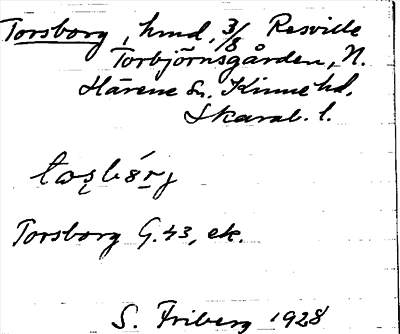 Torsborg, hmd, 3/8 Resville
Torbjörnsgården, N.
Härene sn. Kinne hd.
Skarab. l.
Torsborg G.43, ek.
S. Friberg 1928